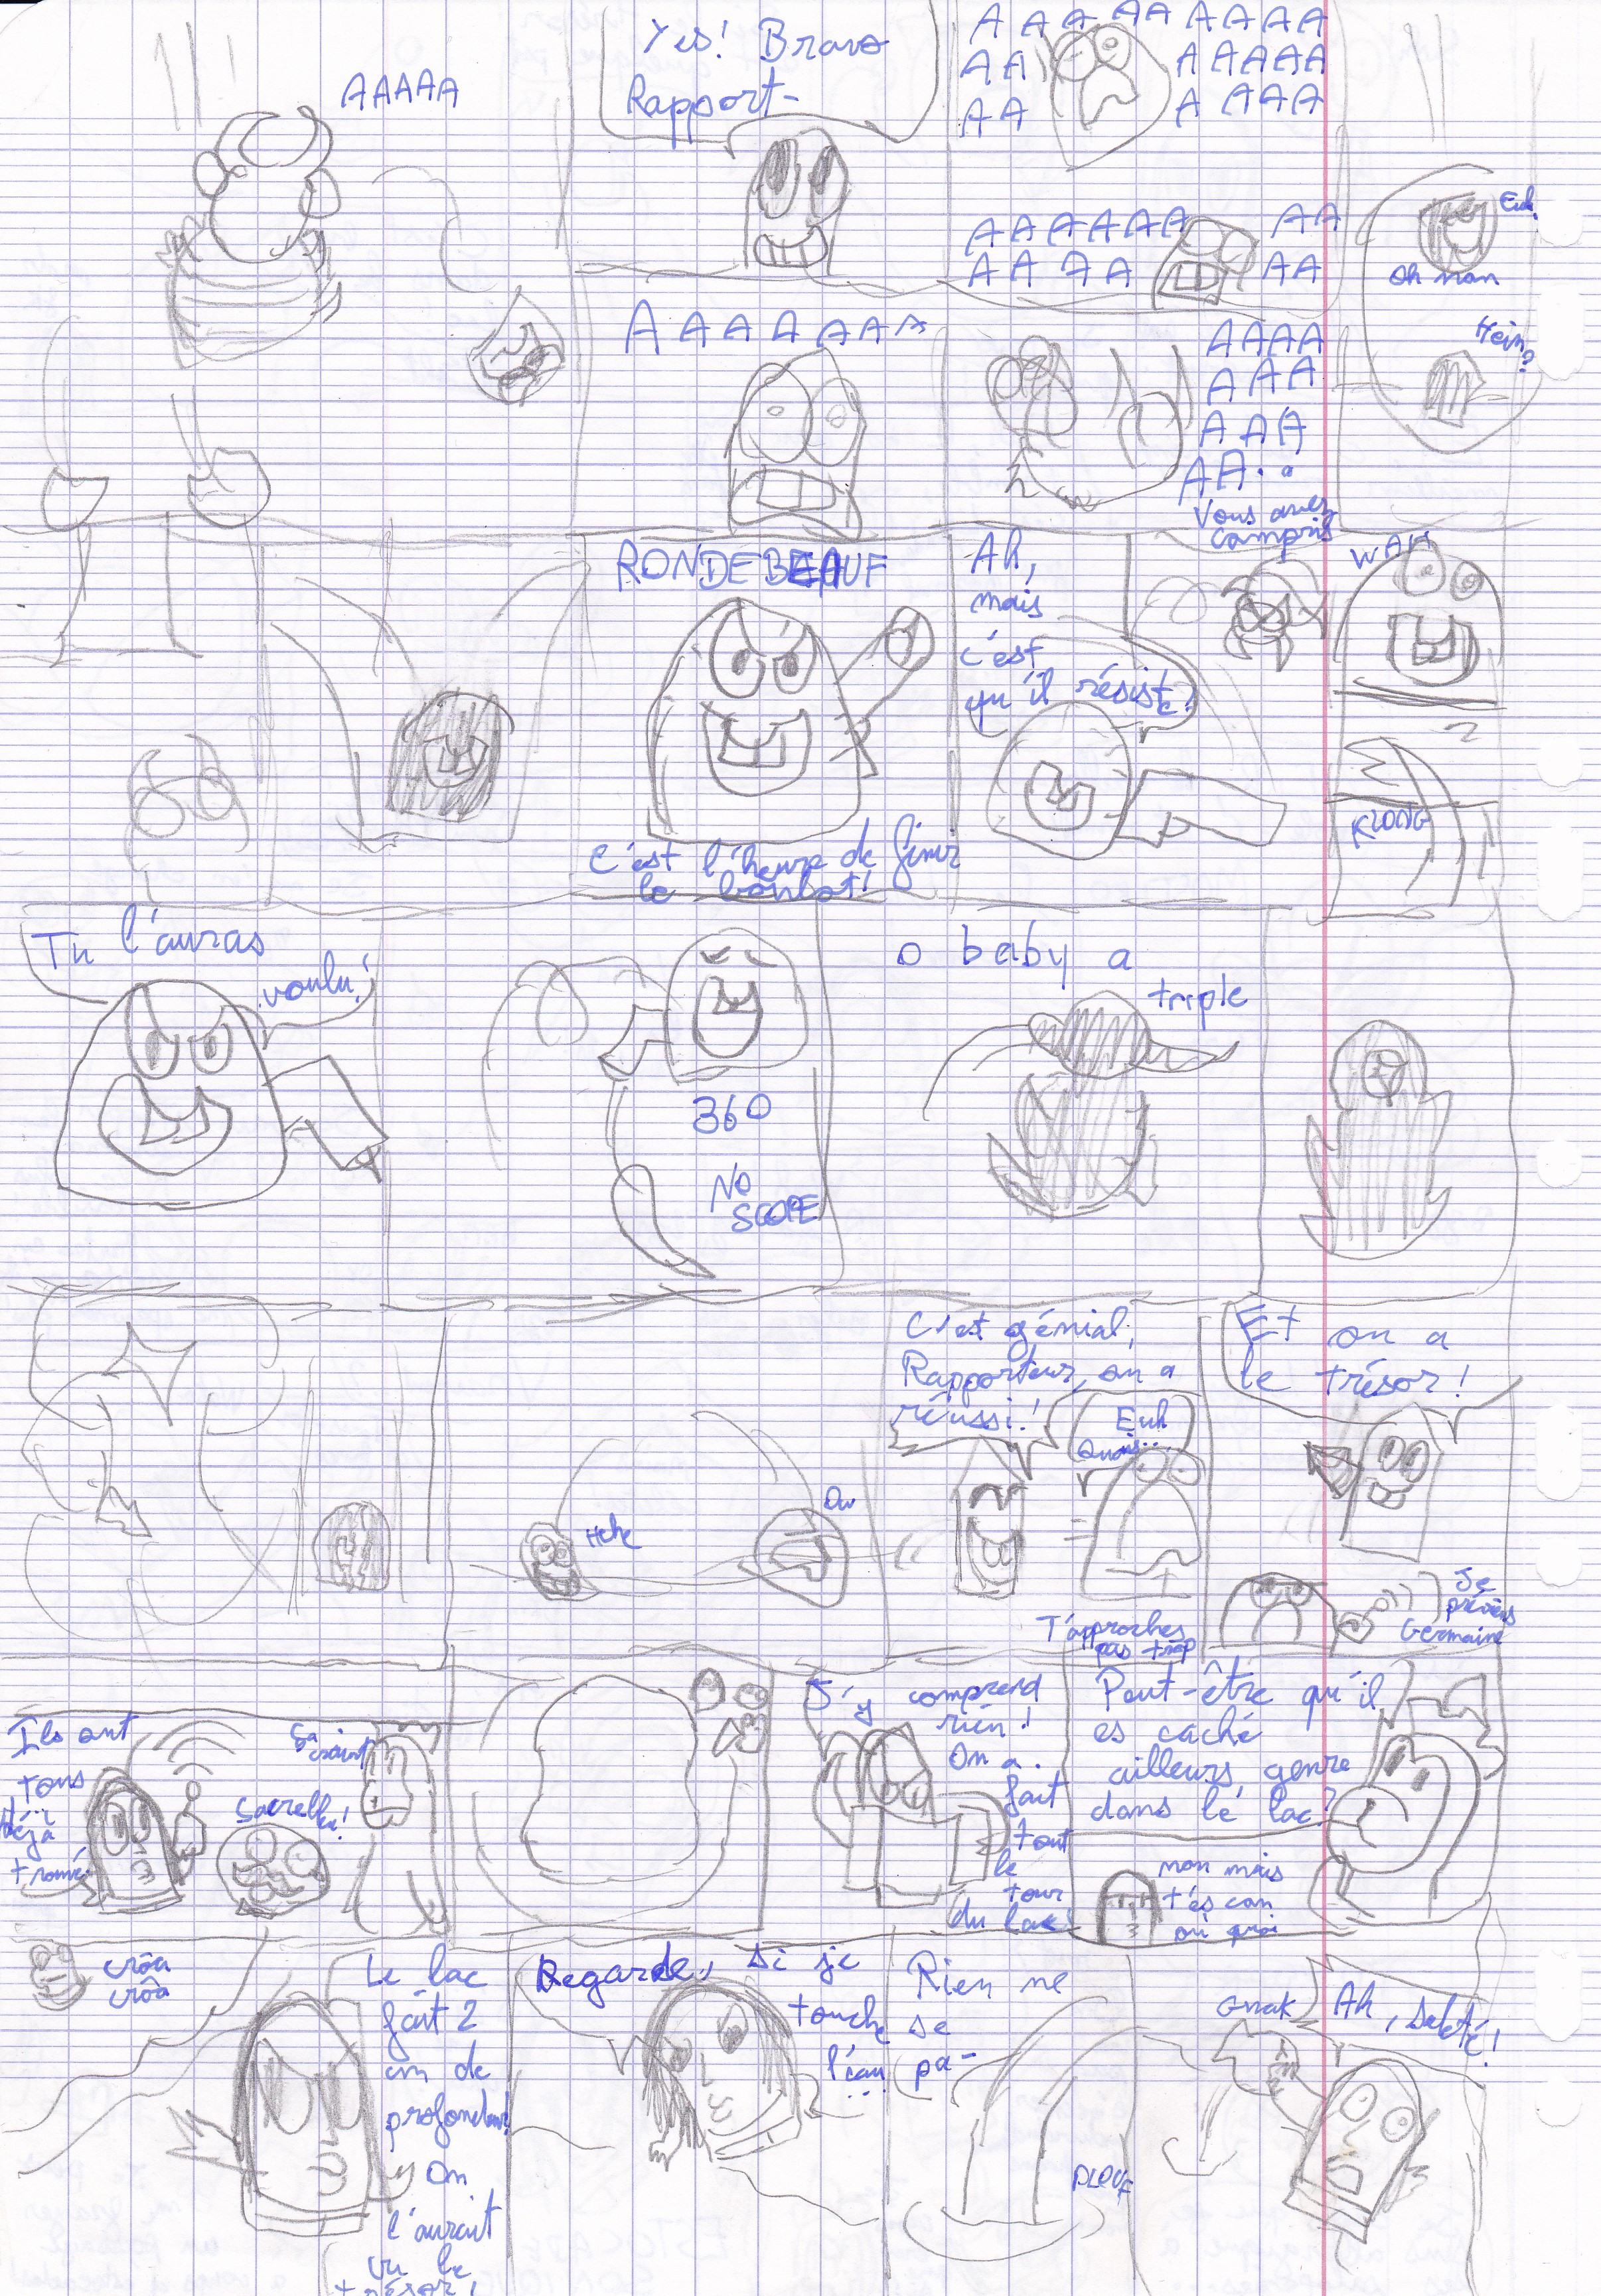 AAAAA
Yes! Bravo
Rapport-
A A A AA AAAA
AA AAAAA
AA A AAA
AAAAAA AA
AA AA AA
Euh
Oh non
Hein?
A A A A A A A
AAAA
AAA
AAA
AA..
Vous avez
compris
RONDEBEAUF
C'est l'heure de finir
le boulot!
Ah,
mais
c'est
qu'il résiste!
WAH
KLONG
Tu l'auras
voulu!
360
NO
SCOPE
O baby a
triple
Hehe
Ow
C'est génial,
Rapporteur, on a
réussi!
Euh
Ouais...
T'approches
pas trop
Et on a
le trésor!
Je
préviens
Germaine
Ils ont
tous
déjà
trouvé
Sacrebleu!
Ça
craint
J'y comprend
rien!
On a
fait
tout
le
tour
du lac!
Peut-être qu'il
es caché
ailleurs, genre
dans le lac?
non mais
t'es con
ou quoi
crôa
crôa
Le lac
fait 2
cm de
profondeur!
On
l'aurait
vu le
trésor!
Regarde, si je
touche
l'eau
...
Rien ne
se
pa-
PLOUF
Gnak
Ah, saleté!